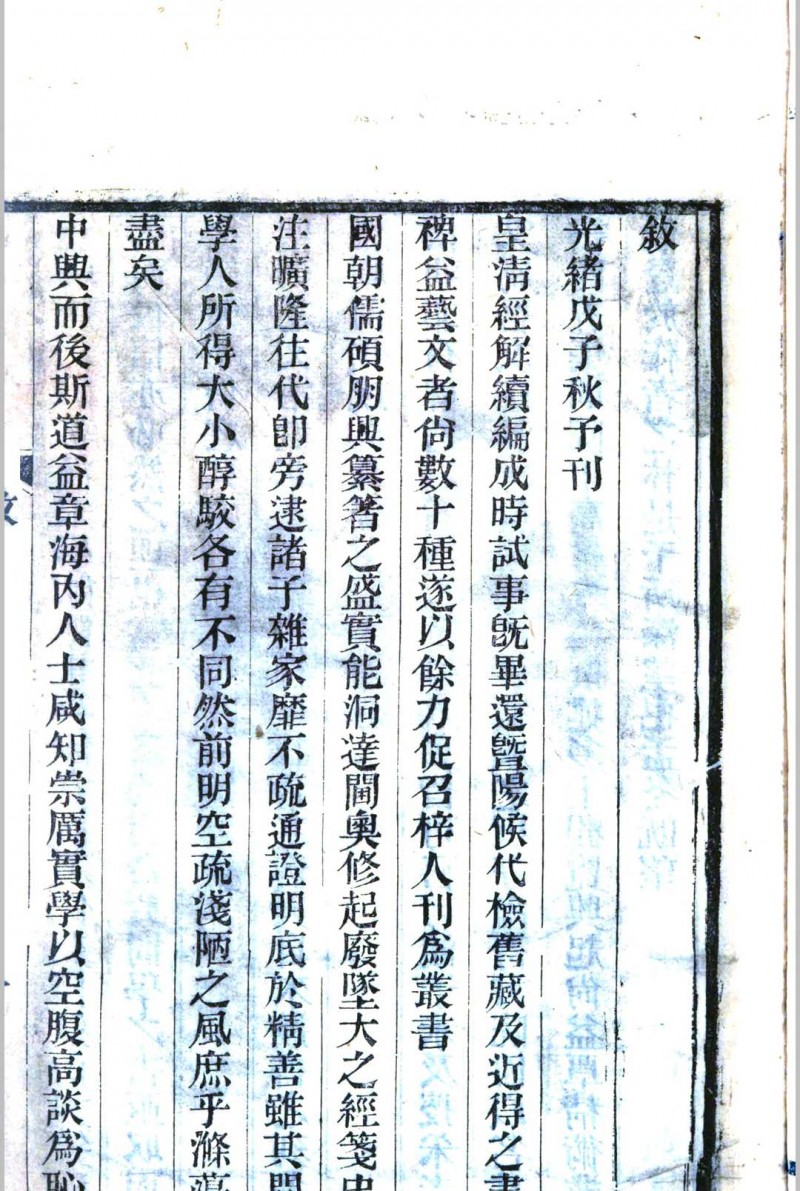 敘
光緒戊子秋予刊
皇清經解續編成時試事旣畢還曁陽候代檢舊藏及近得之書
稗益藝文者尙數十種遂以餘力促召梓人刊爲叢書
國朝儒碩朋興纂箸之盛實能洞達閫奧修起廢墜大之經箋史
注曠隆往代卽旁逮諸子雜家靡不疏通證明底於精善雖其間
學人所得大小醇駁各有不同然前明空疏淺陋之風庶乎滌蕩
盡矣
中興而後斯道益章海內人士咸知崇厲實學以空腹高談爲恥